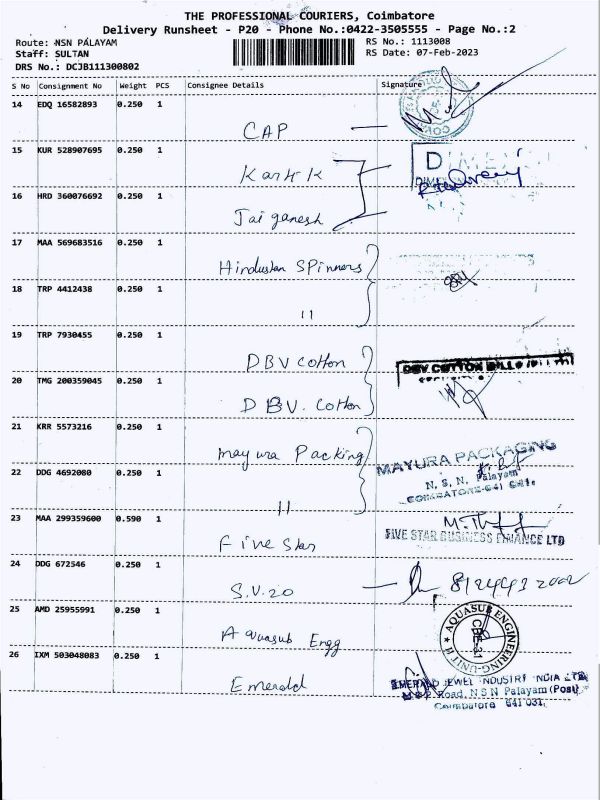 THE PROFESSIONAL COURIERS, Coimbatore
Delivery Runsheet - P20 - Phone No.:0422-3505555 - Page No.:2
Route: NSN PALAYAM
RS No.: 1113008
Staff: SULTAN
RS Date: 07-Feb-2023
DRS No.: DCJB111300802
S No Consignment No Weight PCS Consignee Details Signature
14 EDQ 16582893 0.250 1
CAP
15 KUR 528907695 0.250 1
16 HRD 360076692 0.250 1
Jai ganesh
17 MAA 569683516 0.250 1
Hindustan Spinners
18 TRP 4412438 0.250 1
11
19 TRP 7930455 0.250 1
DBV Cotton
20 TMG 200359045 0.250 1
DBV COTTON MILLS
D BV. Cotton
21 KRR 5573216 0.250 1
Mayura Packing
MAYURA PACKAGING
N. S. N. Palayam
COIMBATORE-641 031.
22 DDG 4692080 0.250 1
11
23 MAA 299359600 0.590 1
FIVE STAR BUSINESS FINANCE LTD
Five Star
24 DDG 672546 0.250 1
S.V.20
25 AMD 25955991 0.250 1
AQUASUB ENGINEERING-UNIT II
CBE-31
Aquasub Engg
26 IXM 503048083 0.250 1
Emerald
EMERALD JEWEL INDUSTRY INDIA LTD
Road, N S N Palayam (Post)
Coimbatore 641 031.